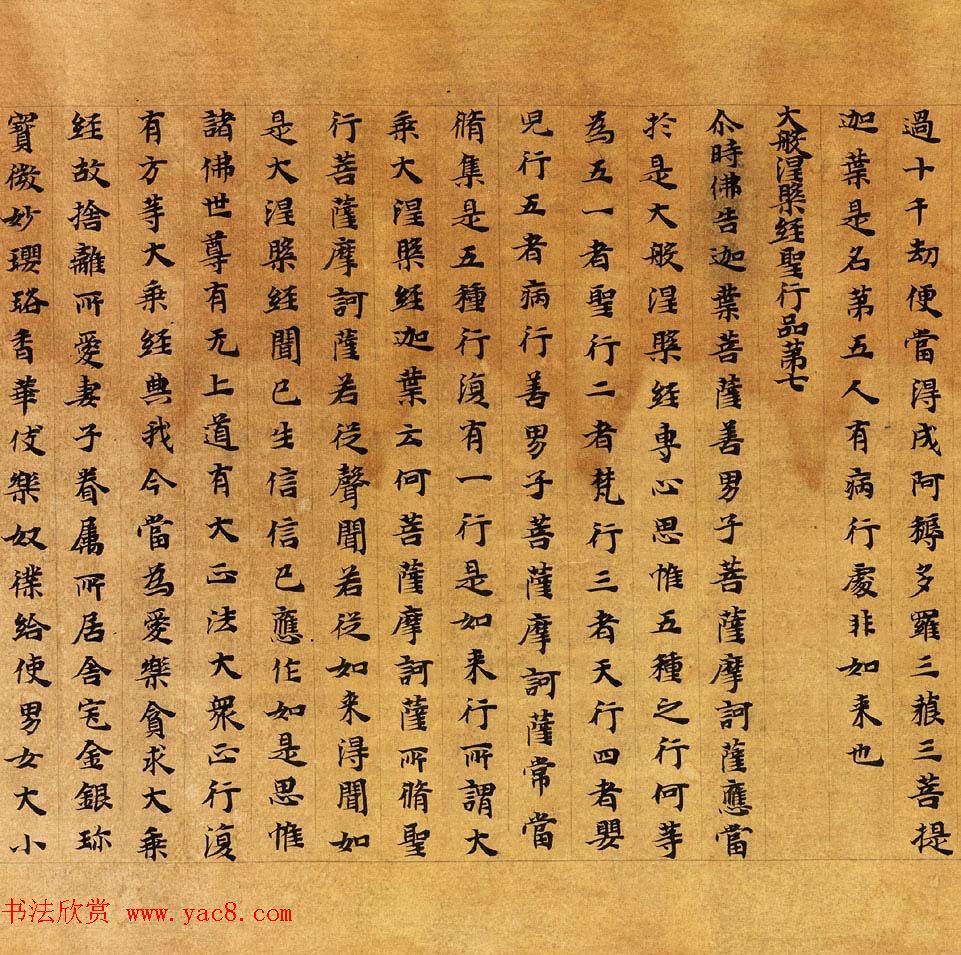 過十千劫便當得成阿耨多羅三藐三菩提
迦葉是名第五人有病行處非如来也
大般涅槃經聖行品第七
尒時佛告迦葉菩薩善男子菩薩摩訶薩應當
於是大般涅槃經専心思惟五種之行何等
為五一者聖行二者梵行三者天行四者嬰
兒行五者病行善男子菩薩摩訶薩常當
脩集是五種行復有一行是如来行所謂大
乗大涅槃經迦葉云何菩薩摩訶薩所脩聖
行菩薩摩訶薩若従聲聞若従如来得聞如
是大涅槃經聞已生信信已應作如是思惟
諸佛世尊有无上道有大正法大衆正行復
有方等大乗經典我今當為愛樂貪求大乗
經故捨離所愛妻子眷属所居舎宅金銀珎
寶微妙瓔珞香華伎樂奴僕給使男女大小
书法欣赏 www.yac8.com